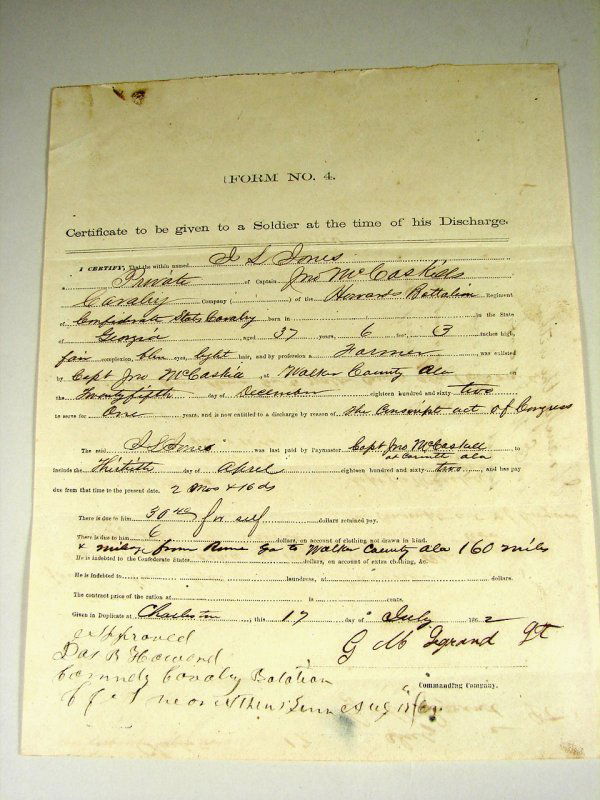 FORM NO. 4.
Certificate to be given to a Soldier at the time of his Discharge.
I CERTIFY, That the within named J S Jones
a Private of Captain Jno McCaskills
Cavalry Company ( ) of the Howards Battalion Regiment
of Confederate States Cavalry born in in the State
of Georgia aged 37 years, 6 feet, (3 inches high,
fair complexion, blue eyes, light hair, and by profession a Farmer was enlisted
by Capt Jno McCaskill at Walker County Ala on
the Twenty fifth day of eighteen hundred and sixty two
to serve for One years, and is now entitled to a discharge by reason of the Conscript act of Congress
The said J S Jones was last paid by Paymaster Capt Jno McCaskill to
at Corinth ala
include the Thirtieth day of April eighteen hundred and sixty two, and has pay
due from that time to the present date. 2 Mos & 16 ds
There is due to him 30 40 for self dollars retained pay.
There is due to him 6 dollars, on account of clothing not drawn in kind.
& milage from Rome Ga to Walker County Ala 160 miles
He is indebted to the Confederate States dollars, on account of extra clothing, &c.
He is indebted to laundress, at dollars.
The contract price of the ration at is cents.
Given in Duplicate at Charleston, this 17 day of July 1862
Approved
G M Legrand
Howard
Cavalry Batalion
Commanding Company.